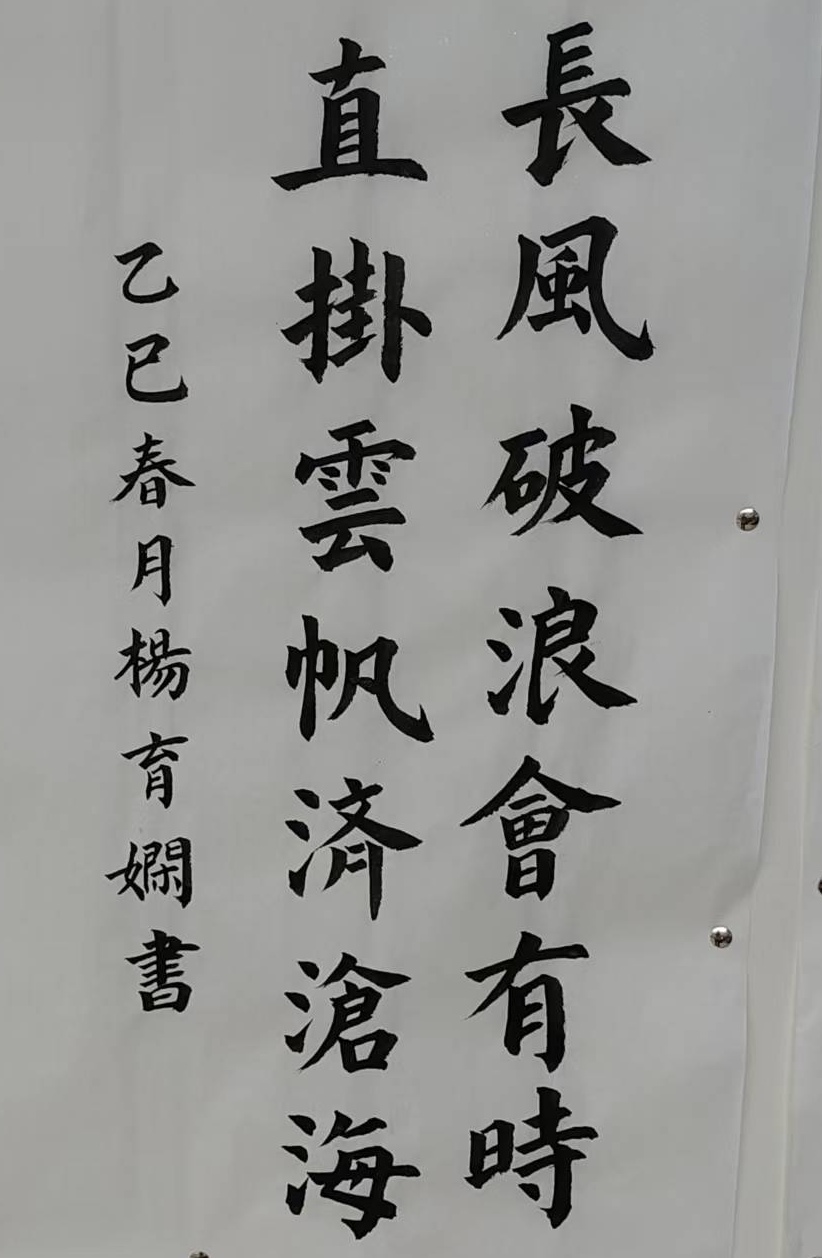 長風破浪會有時
直掛雲帆済滄海
乙巳春月楊育嫻書